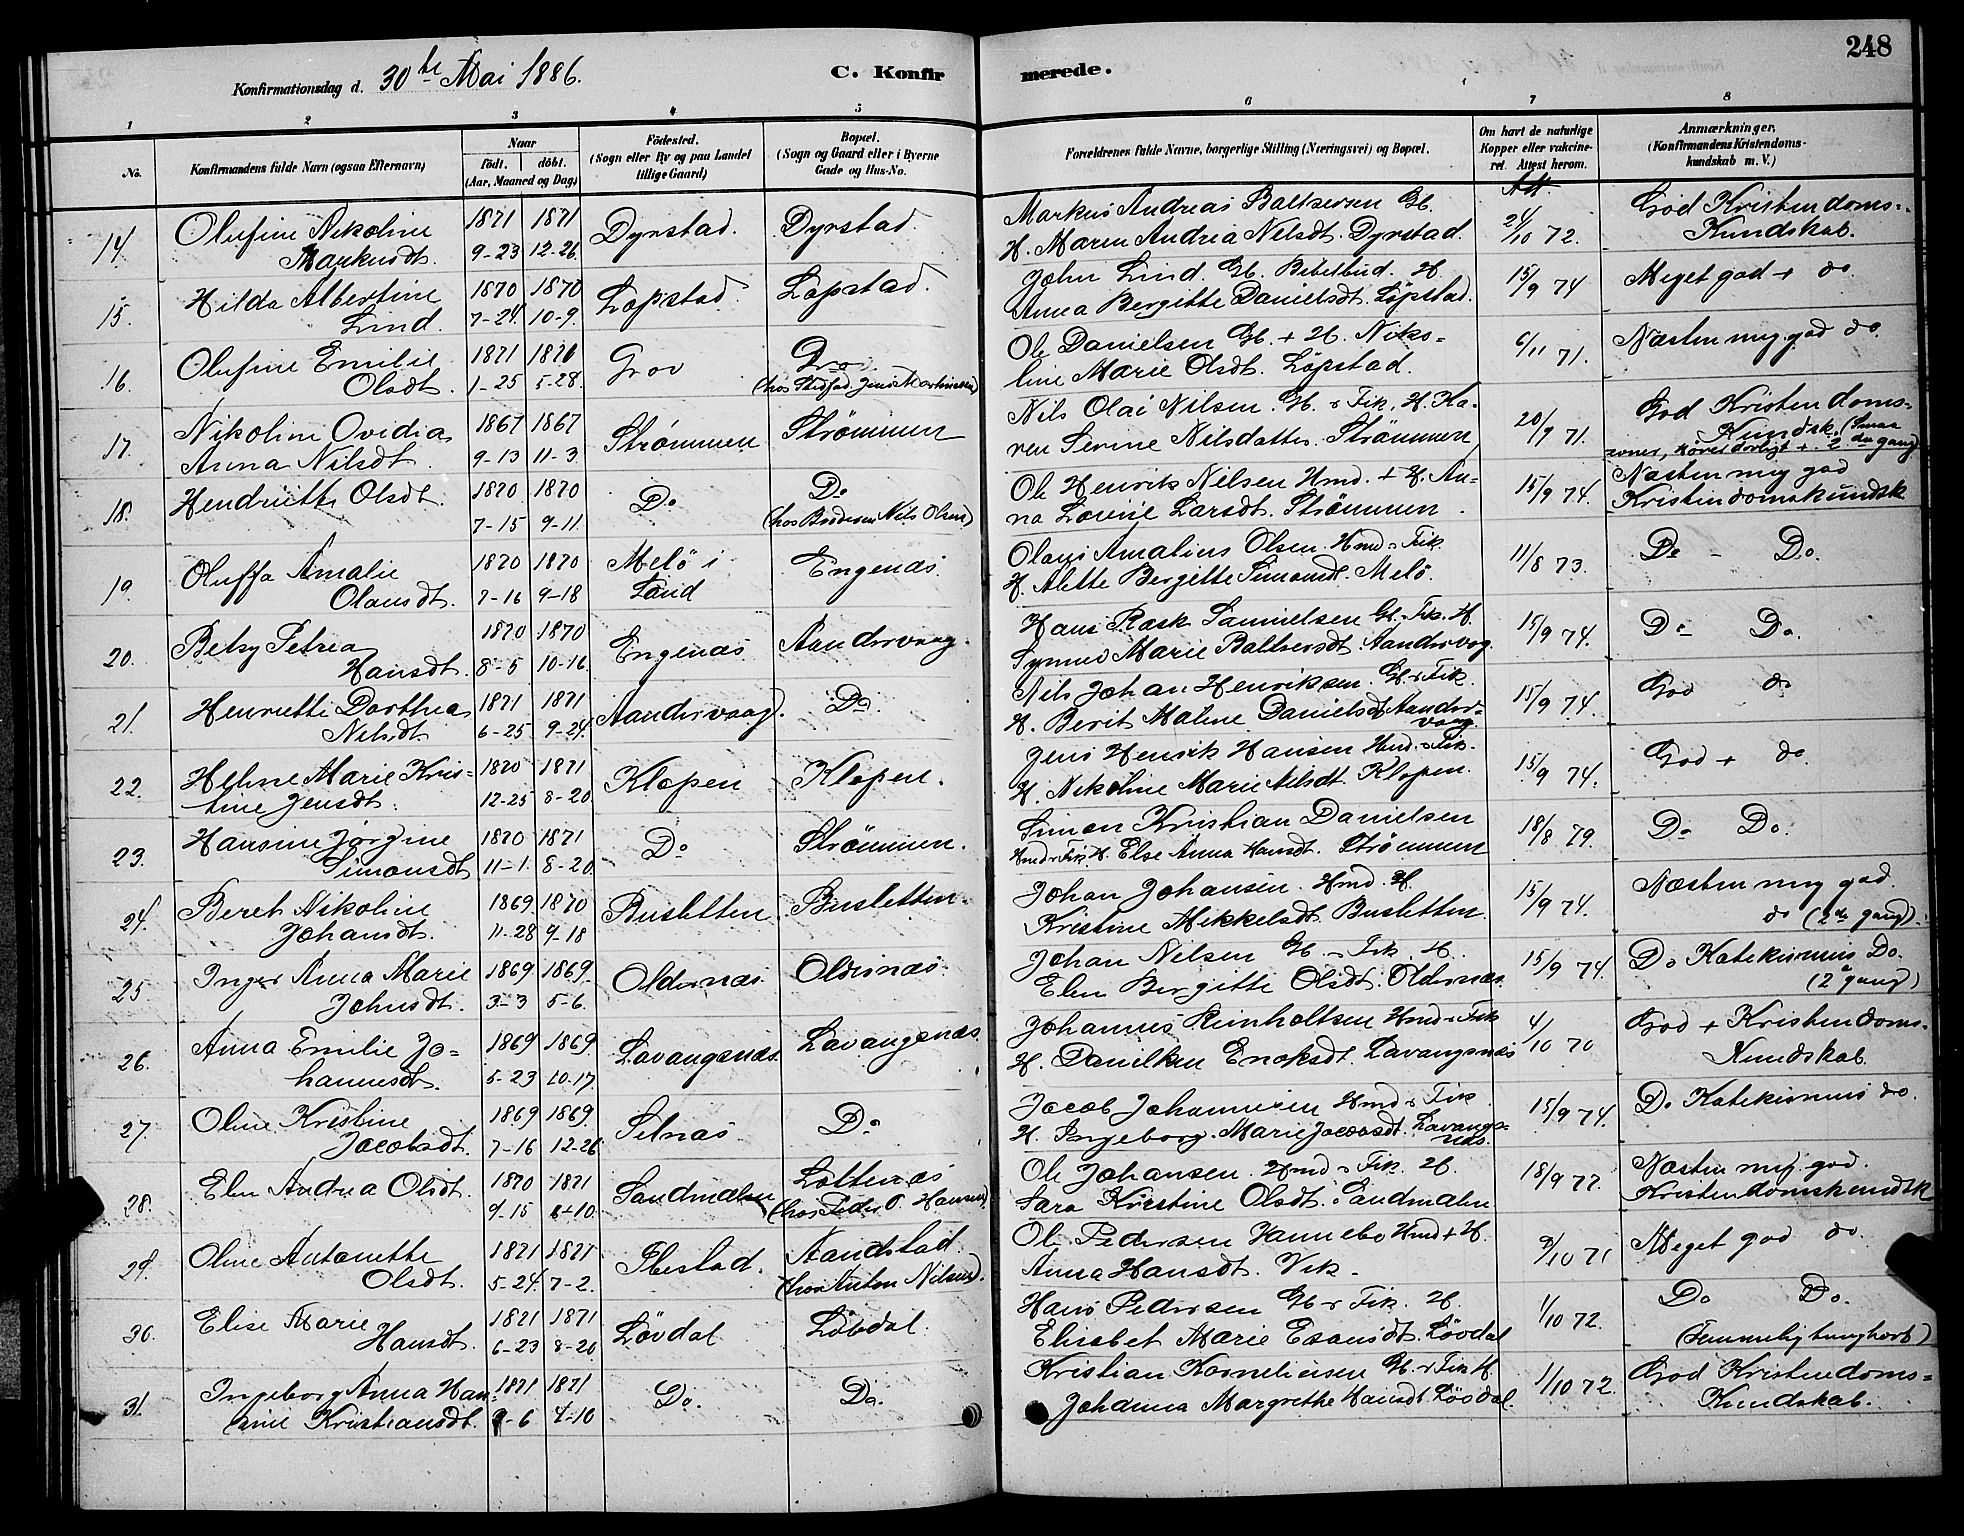 248
Konfirmationsdag d. 30te Mai 1886.
C. Konfirmerede.
1 2 3 4 5 6 7 8
No.
Konfirmandens fulde Navn (ogsaa Efternavn)
Naar
födt. döbt.
(Aar, Maaned og Dag)
Födested.
(Sogn eller By og paa Landet
tillige Gaard)
Bopæl.
(Sogn og Gaard eller i Byerne
Gade og Hus-No.
Forældrenes fulde Navne, borgerlige Stilling (Næringsvei) og Bopæl.
Om havt de naturlige
Kopper eller vakcine-
ret. Attest herom.
Anmærkninger.
(Konfirmandens Kristendoms-
kundskab m. V.)
Att
14. Olufine Nikoline 1871 1871 Dyrstad. Dyrstad. Markus Andreas Baltsersen Gb. 24/10 72. God Kristendoms-
Markusdt. 9-23 12-26 H. Maren Andrea Nilsdt. Dyrstad. Kundskab.
15. Hilda Albertine 1870 1870 Løpstad. Løpstad. John Lind. Gb. Bibelbud. H. 15/9 74 Meget god + do.
Lind. 7-24 10-9. Anna Bergitte Danielsdt. Løpstad.
16. Olufine Emilie 1871 1871 Grov Do. Ole Danielsen Gb. + H. Niko- 6/11 71. Næsten mg. god do.
Olsdt. 1-25 5-28. (hos Stedfad. Jens Martinsen) line Marie Olsdt. Løpstad.
17. Nikoline Ovidia 1867 1867 Strømmen Strømmen Nils Olai Nilsen. Gb. & Fisk. H. Ka- 20/9 71. God Kristendoms-
Anna Nilsdt. 9-13 11-3. ren Serine Nilsdatter. Strømmen Kundsk. (Smaa
evner, hører daarligt + 2den gang)
18. Hendriette Olsdt. 1870 1870 Do Do Ole Henrik Nilsen Hmd. + H. An- 15/9 74. Næsten mg god
7-15 9-11. (hos Broderen Nils Olsen) na Lovine Larsdt. Strømmen. Kristendomskundsk
19. Oluffa Amalie 1870 1870 Melö i Engenæs Olaus Amalius Olsen. Hmd. & Fisk. 11/8 73. Do - Do.
Olausdt. 7-16 9-18 Sand H. Alette Bergitte Simonsdt. Melö.
20. Betsy Petrea 1870 1870 Engenæs Aandervaag. Hans Rask Samuelsen Gb. & Fisk. H. 15/9 74. Do Do.
Hansdt. 8-5 10-16. Synnev Marie Baltsersdt. Aandervaag.
21. Henriette Dorthea 1871 1871 Aandervaag. Do. Nils Johan Henriksen. Gb. & Fisk. 15/9 74. God do
Nilsdt. 6-25 9-24. H. Berit Maline Danielsdt. Aander-
vaag.
22. Heline Marie Kris- 1870 1871 Kløpen Kløpen. Jens Henrik Hansen Hmd. & Fisk. 15/9 74. God + do.
tine Jensdt. 12-25 8-20. H. Nikoline Marie Nilsdt. Kløpen.
23. Hansine Jørgine 1870 1871 Do Strømmen. Simon Kristian Danielsen 18/8 79. Do Do.
Simonsdt. 11-1. 8-20. Hmd & Fisk. H. Else Anna Hansdt. Strømmen
24. Beret Nikoline 1869 1870 Busletten. Busletten. Johan Johansen. Hmd. H. 15/9 74. Næsten mg god.
Johansdt. 11-28 9-18 Kristine Mikkelsdt. Busletten. do (2de gang).
25 Inger Anna Marie 1869 1869. Oldernæs. Oldernæs. Johan Nilsen Gb. & Fisk. H. 15/9 74. Do Katekismus Do.
Johnsdt. 3-3 5-6. Elen Bergitte Olsdt. Oldernæs. (2den gang)
26. Anna Emilie Jo- 1869 1869. Lavangsnæs. Lavangsnæs. Johannes Reinholtsen Hmd & Fisk 4/10 70 God + Kristendoms-
hannesdt. 5-23 10-17. H. Danilken Enoksdt. Lavangsnæs Kundskab.
27. Oline Kristine 1869 1869. Selnæs. Do Jacob Johannesen Hmd & Fisk. 15/9 74. Do Katekismus do.
Jacobsdt. 7-16 12-26 H. Ingeborg Marie Jacobsdt. Lavangs-
næs.
28. Elen Andrea Olsdt. 1870 1871 Sandmælen Løttenæs Ole Johansen. Hmd & Fisk. H. 18/9 77. Næsten mg. god.
9-15 6-10. (hos Peder O. Hansen). Sara Kirstine Olsdt. Sandmælen Kristendomskundsk
29. Oline Antonette 1871 1871 Ibestad. Aandstad. Ole Pedersen Hannebo Hmd + H. 9/10 71 Meget god do.
Olsdt. 5-24. 7-2. (hos Anton Nilsen). Anna Hansdt. Vik.
30. Elise Marie 1871 1871 Løvdal Løvdal. Hans Pedersen Gb. & Fisk. H. 1/10 72. Do Do.
Hansdt. 6-23 8-20. Elisabet Marie Esaiasdt. Løvdal (Temmelig tunghørt)
31. Ingeborg Anna Han- 1871 1871 Do. Do. Kristian Korneliusen Gb. & Fisk H. 1/10 72. God Kristendoms-
sine Kristiansdt. 9-6 4-10 Johanna Margrethe Hansdt. Løvdal. Kundskab.